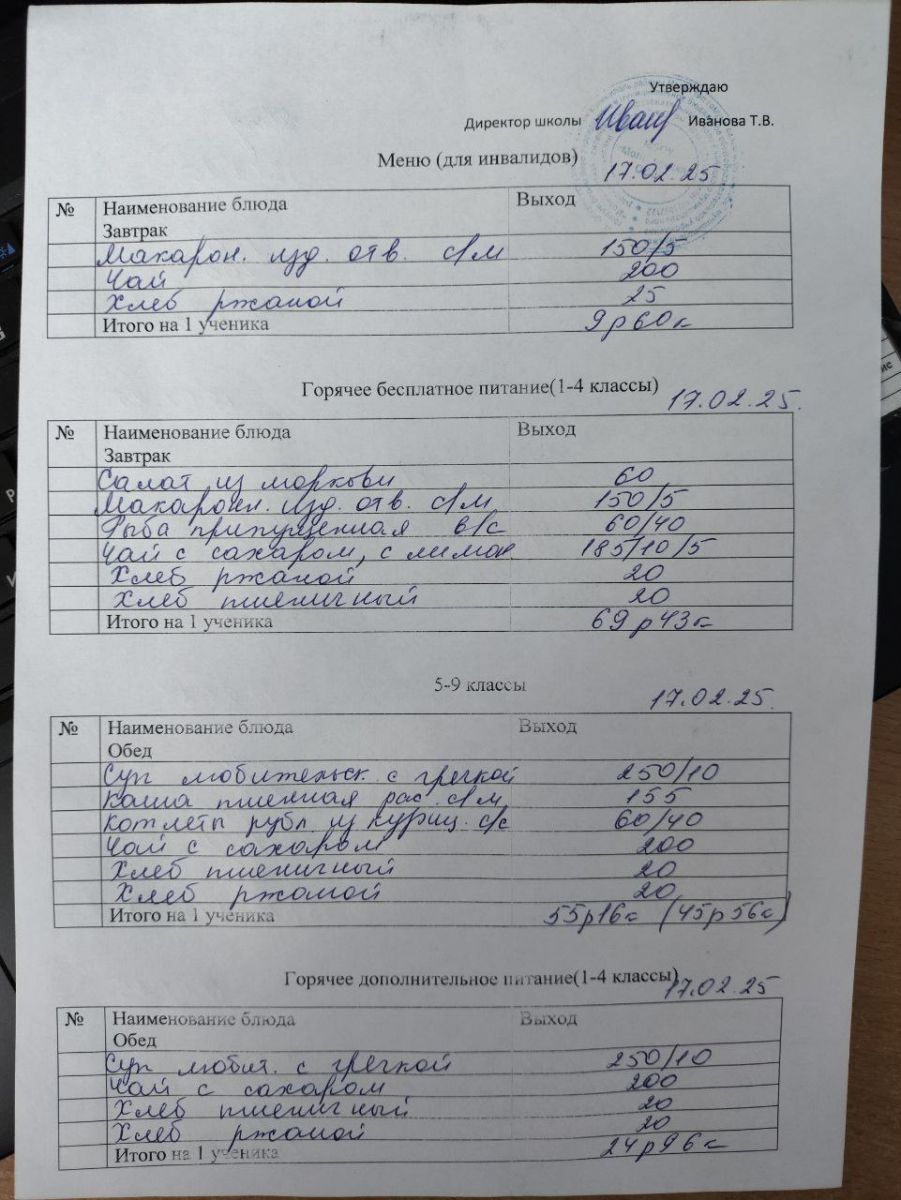 Утверждаю
Директор школы Иванова Т.В.
Меню (для инвалидов)
17.02.25
№ Наименование блюда Выход
Завтрак
Макарон. изд. отв. с/м 150/5
Чай 200
Хлеб ржаной 25
Итого на 1 ученика 9р60к
Горячее бесплатное питание(1-4 классы)
17.02.25.
№ Наименование блюда Выход
Завтрак
Салат из моркови 60
Макарон. изд. отв. с/м 150/5
Рыба припущенная в/с 60/40
Чай с сахаром, с лимон 185/10/5
Хлеб ржаной 20
Хлеб пшеничный 20
Итого на 1 ученика 69р43к
5-9 классы
17.02.25.
№ Наименование блюда Выход
Обед
Суп любительск. с гречкой 250/10
Каша пшенная рас. с/м 155
Котлеты рубл. из куриц. с/с 60/40
Чай с сахаром 200
Хлеб пшеничный 20
Хлеб ржаной 20
Итого на 1 ученика 55р16к (45р56к)
Горячее дополнительное питание(1-4 классы)
17.02.25
№ Наименование блюда Выход
Обед
Суп любит. с гречкой 250/10
Чай с сахаром 200
Хлеб пшеничный 20
Хлеб ржаной 20
Итого на 1 ученика 24р96к